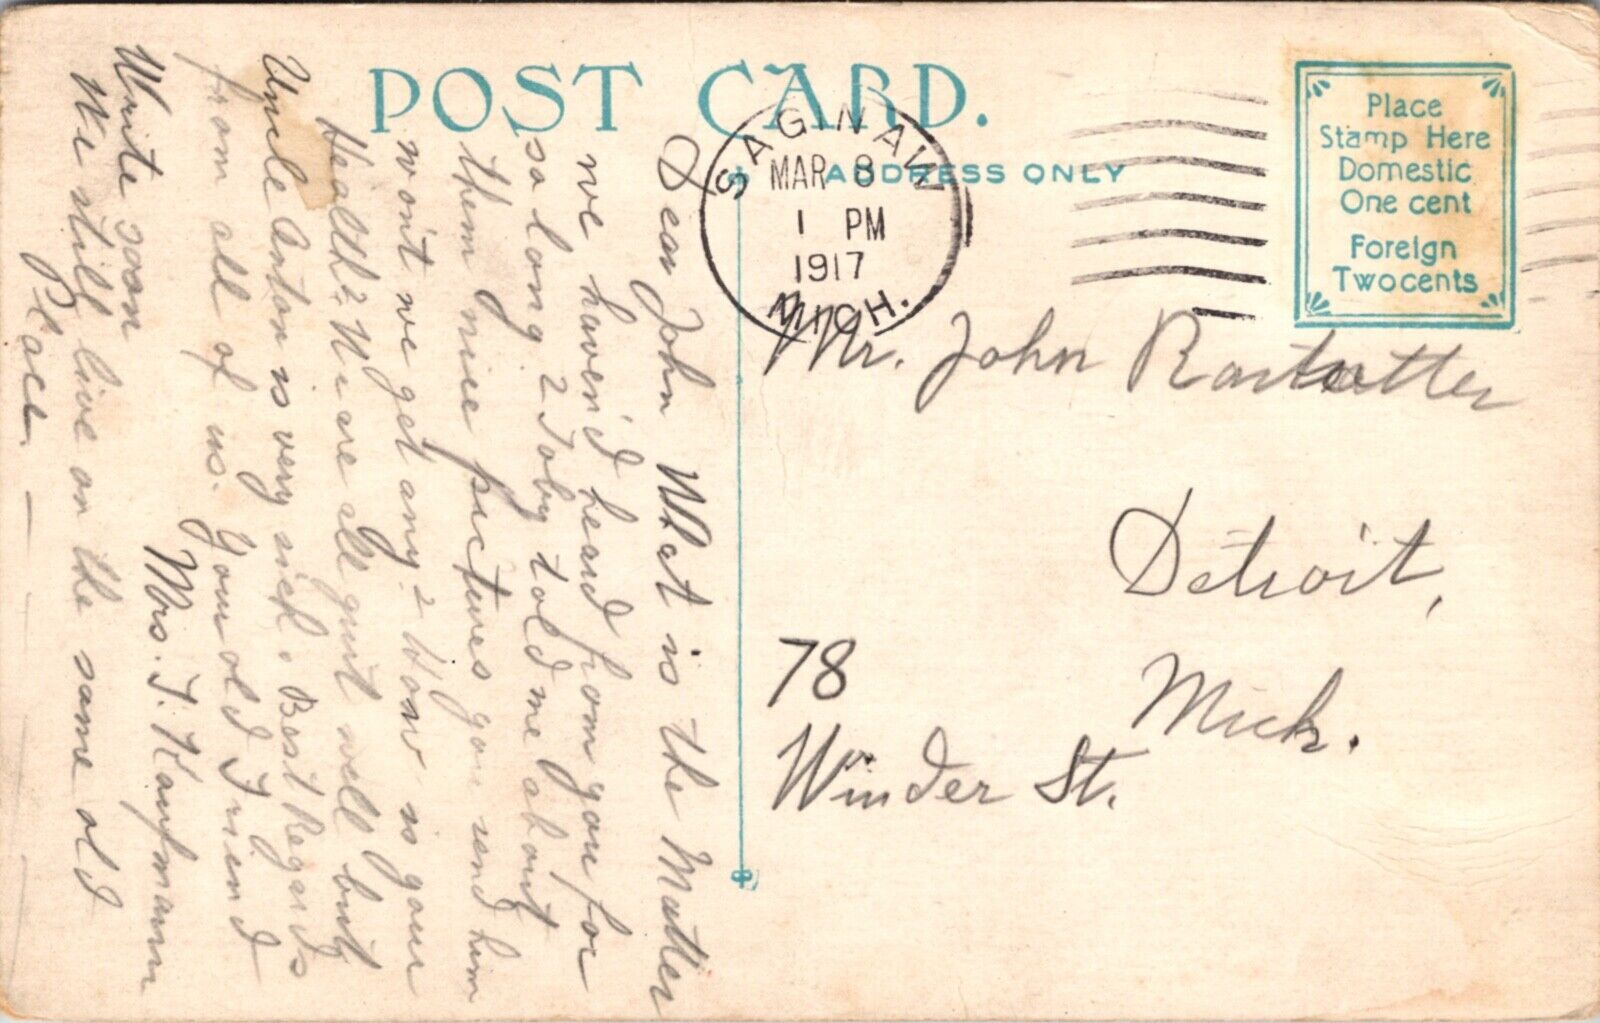 POST CARD.
ADDRESS ONLY
SAGINAW
MAR 8
1 PM
1917
MICH.
Place
Stamp Here
Domestic
One cent
Foreign
Two cents
Dear John What is the Matter
we haven'd heard from you for
so long? Toby told me about
them nice pictures you send him
won't we get any? How is your
Health? We are all quit well but
Uncle Anton is very sick. Best Regards
from all of us. Your old Friend
Mrs. J. Kaufmann
Write soon
We still live on the same old
Place.
Mr. John
Detroit,
Mich.
78
Winder St.